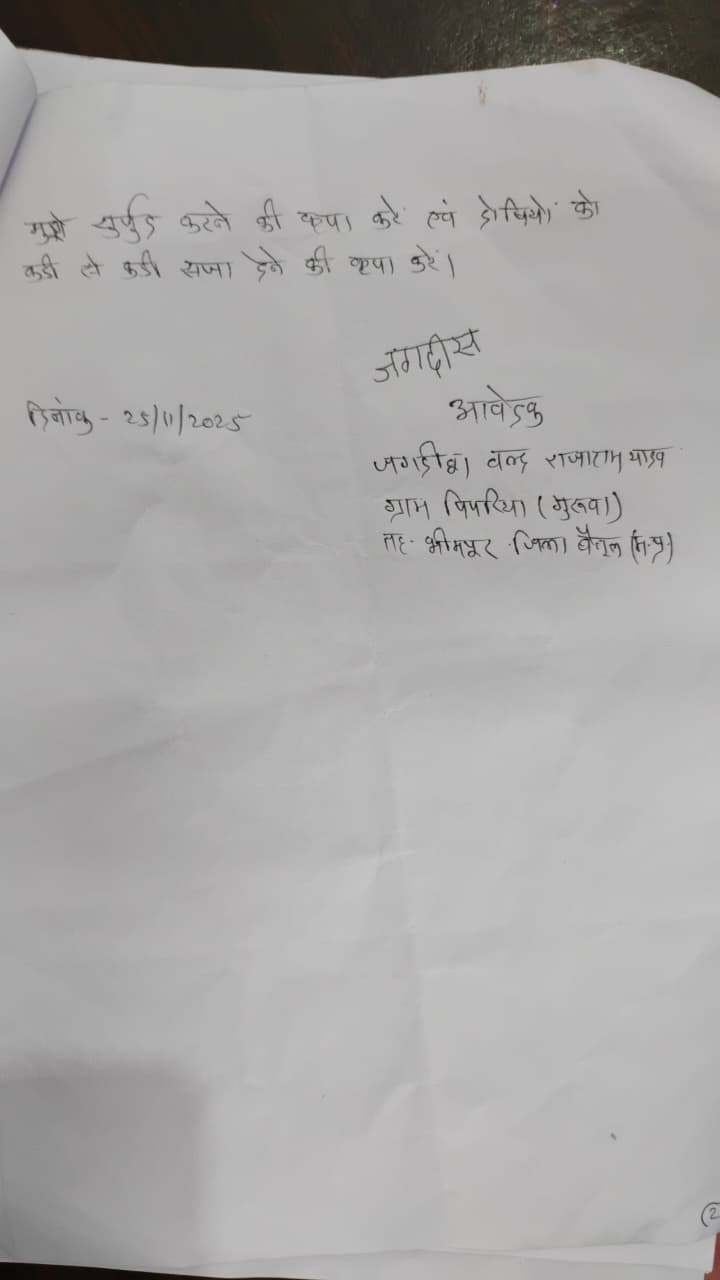 मुझे सुर्पुद करने की कृपा करें एवं दोषियों को
कडी से कडी सजा देने की कृपा करें।
जगदीस
दिनांक - 25/11/2025
आवेदक
जगदीश वल्द राजाराम यादव
ग्राम पिपरिया (गुरूवा)
तह. भीमपुर जिला बैतूल (म.प्र.)
(2